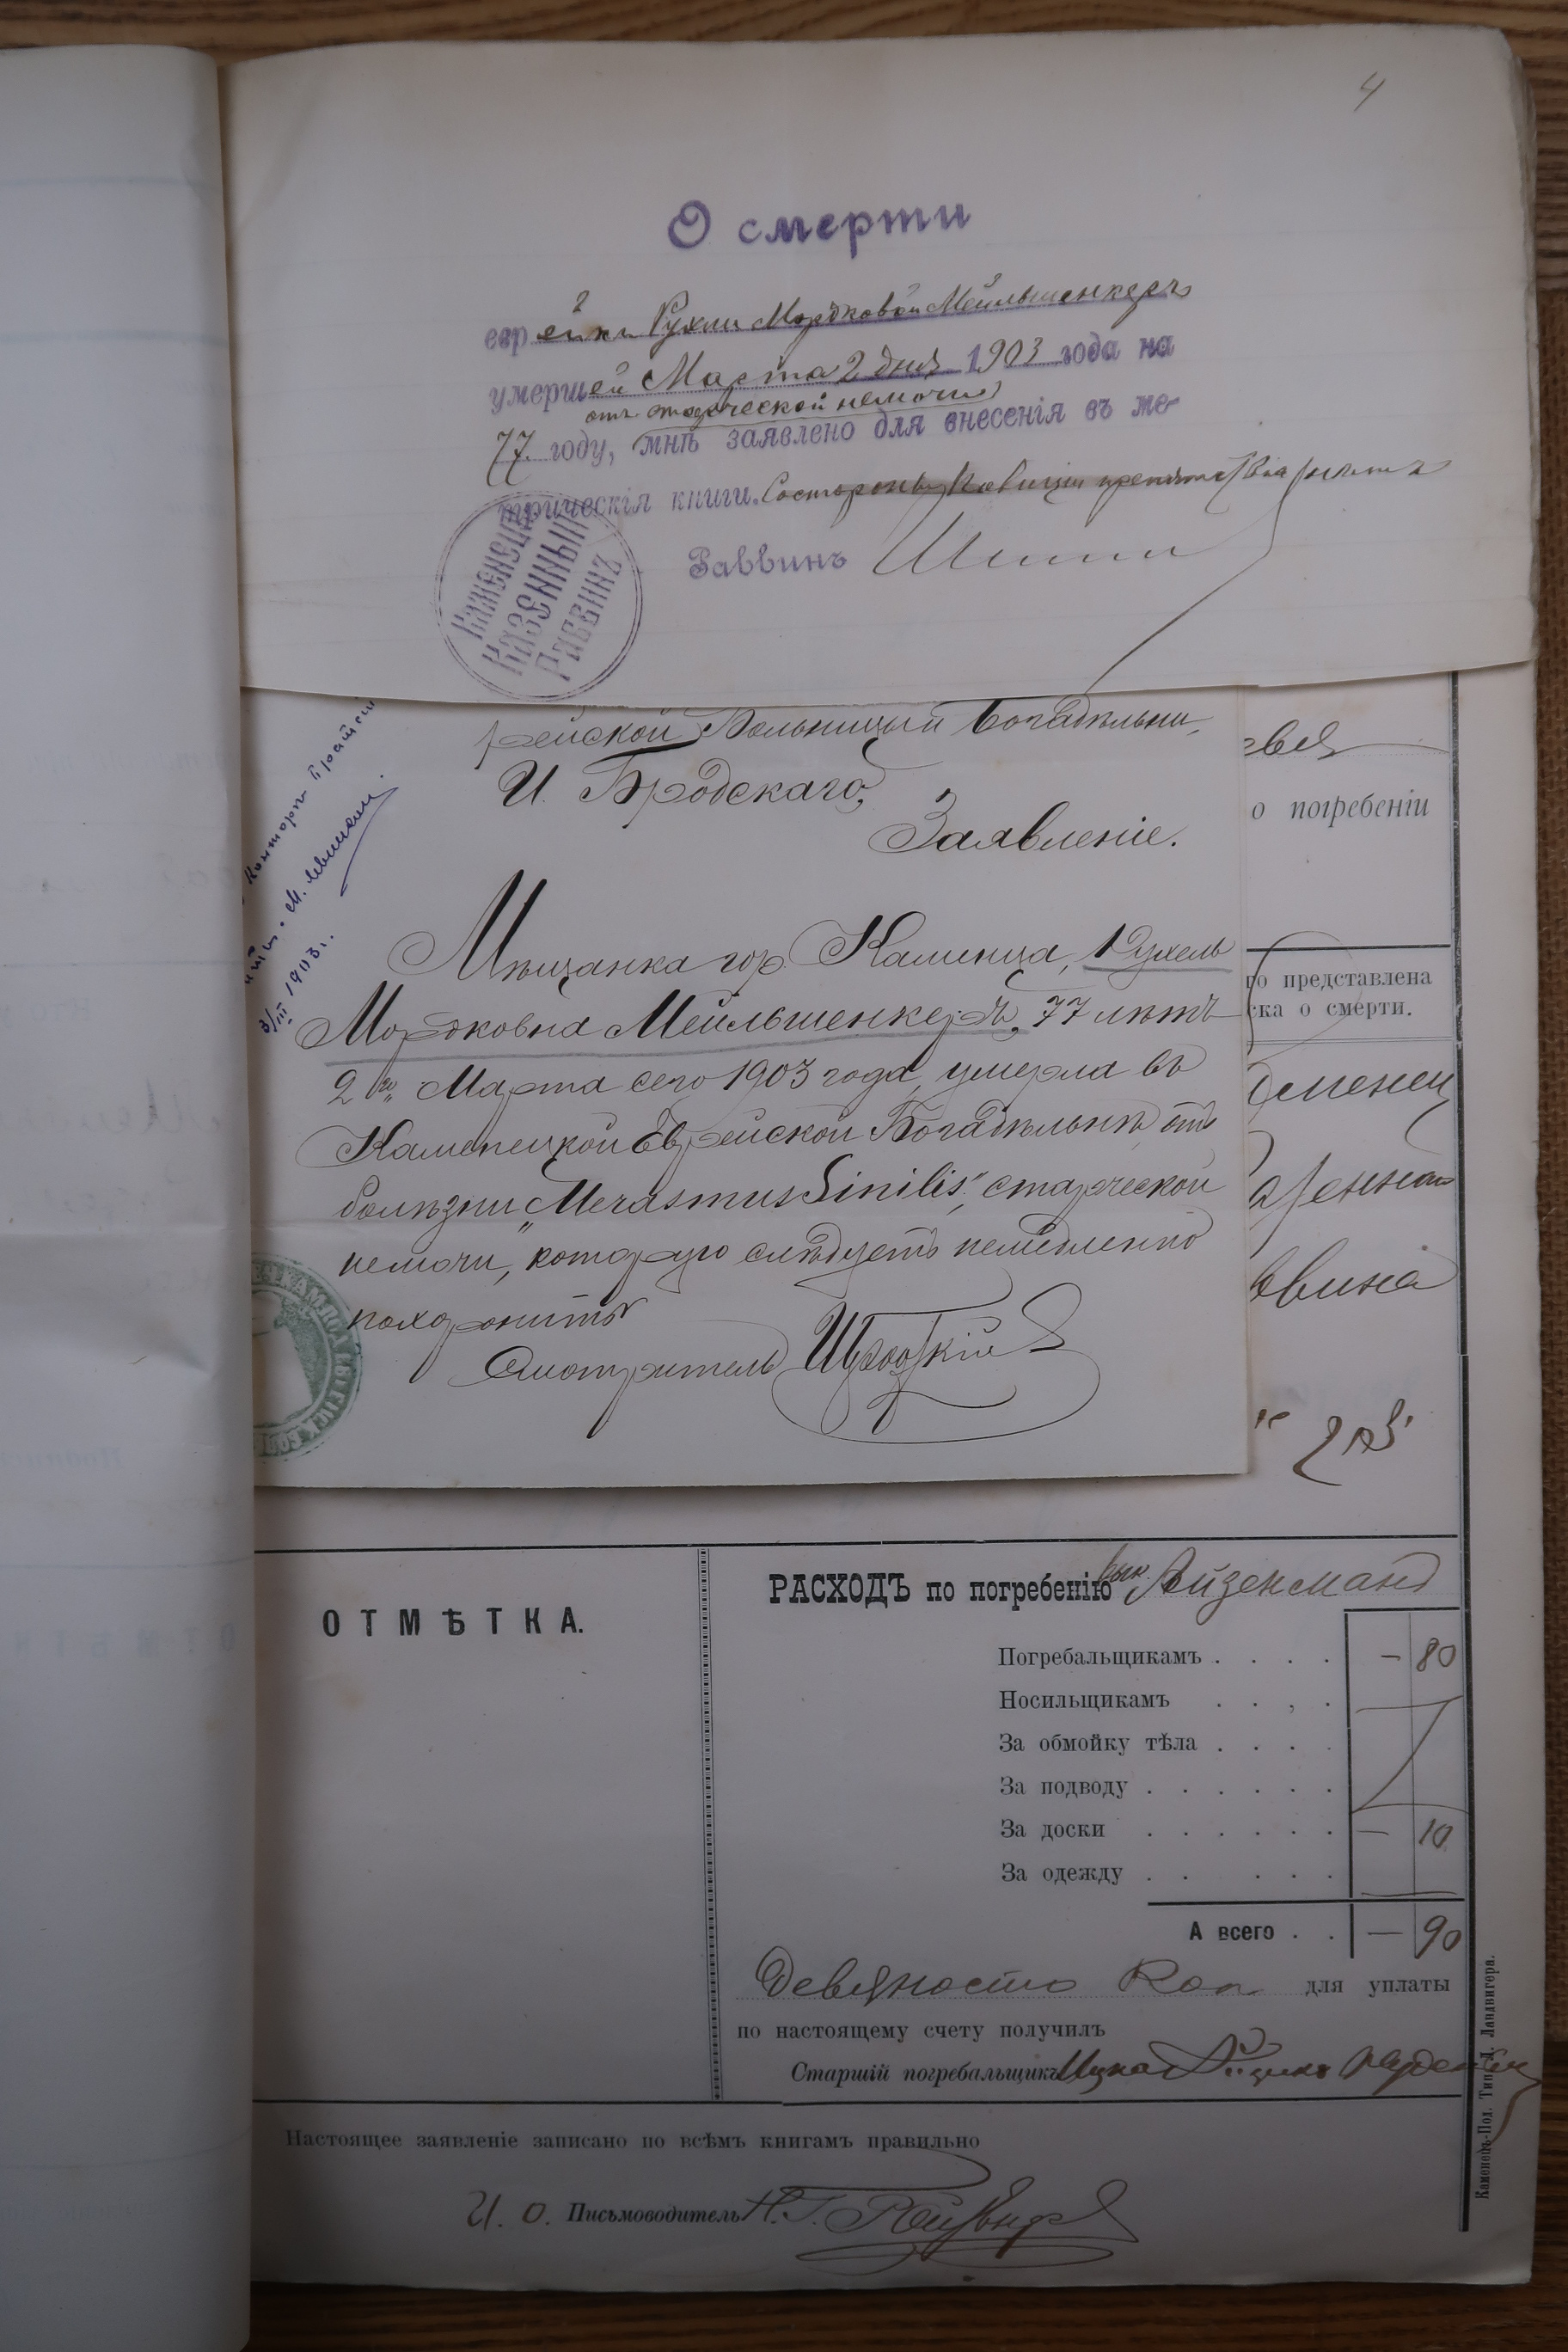 4
О смерти
еврейки Рухли Мордковой Мейльшенкеръ
умершей Марта 2 дня 1903 года на
отъ старческой немочи
77 году, мнѣ заявлено для внесенія въ ме-
трическія книги. Со стороны полиціи препятствія нѣтъ
Раввинъ
Каменецкій
Казенный
Раввинъ
рейской Больницы и Богадѣльни,
И. Бродскаго,
Заявленіе.
Конторѣ
М.
3/III 1903 г.
Мѣщанка гор. Каменца, Рухель
Мордковна Мейльшенкеръ, 77 лѣтъ
2го Марта сего 1903 года, умерла въ
Каменецкой Еврейской Богадѣльнѣ отъ
болѣзни „Merasmus Sinilis", старческой
немочи, которую слѣдуетъ немедленно
похоронить
Смотритель
о погребеніи
го представлена
ска о смерти.
еменец
ввина
ОТМѢТКА.
РАСХОДЪ по погребенію Айзенманъ
Погребальщикамъ . . . . — 80
Носильщикамъ . . , .
За обмойку тѣла . . . .
За подводу . . . . . .
За доски . . . . . . — 10
За одежду . . . . . .
А всего . . — 90
Девяносто Коп для уплаты
по настоящему счету получилъ
Старшій погребальщикъ Ицко
Настоящее заявленіе записано по всѣмъ книгамъ правильно
И. О. Письмоводитель
Каменецъ-Под. Тип. Д. Ландвигера.